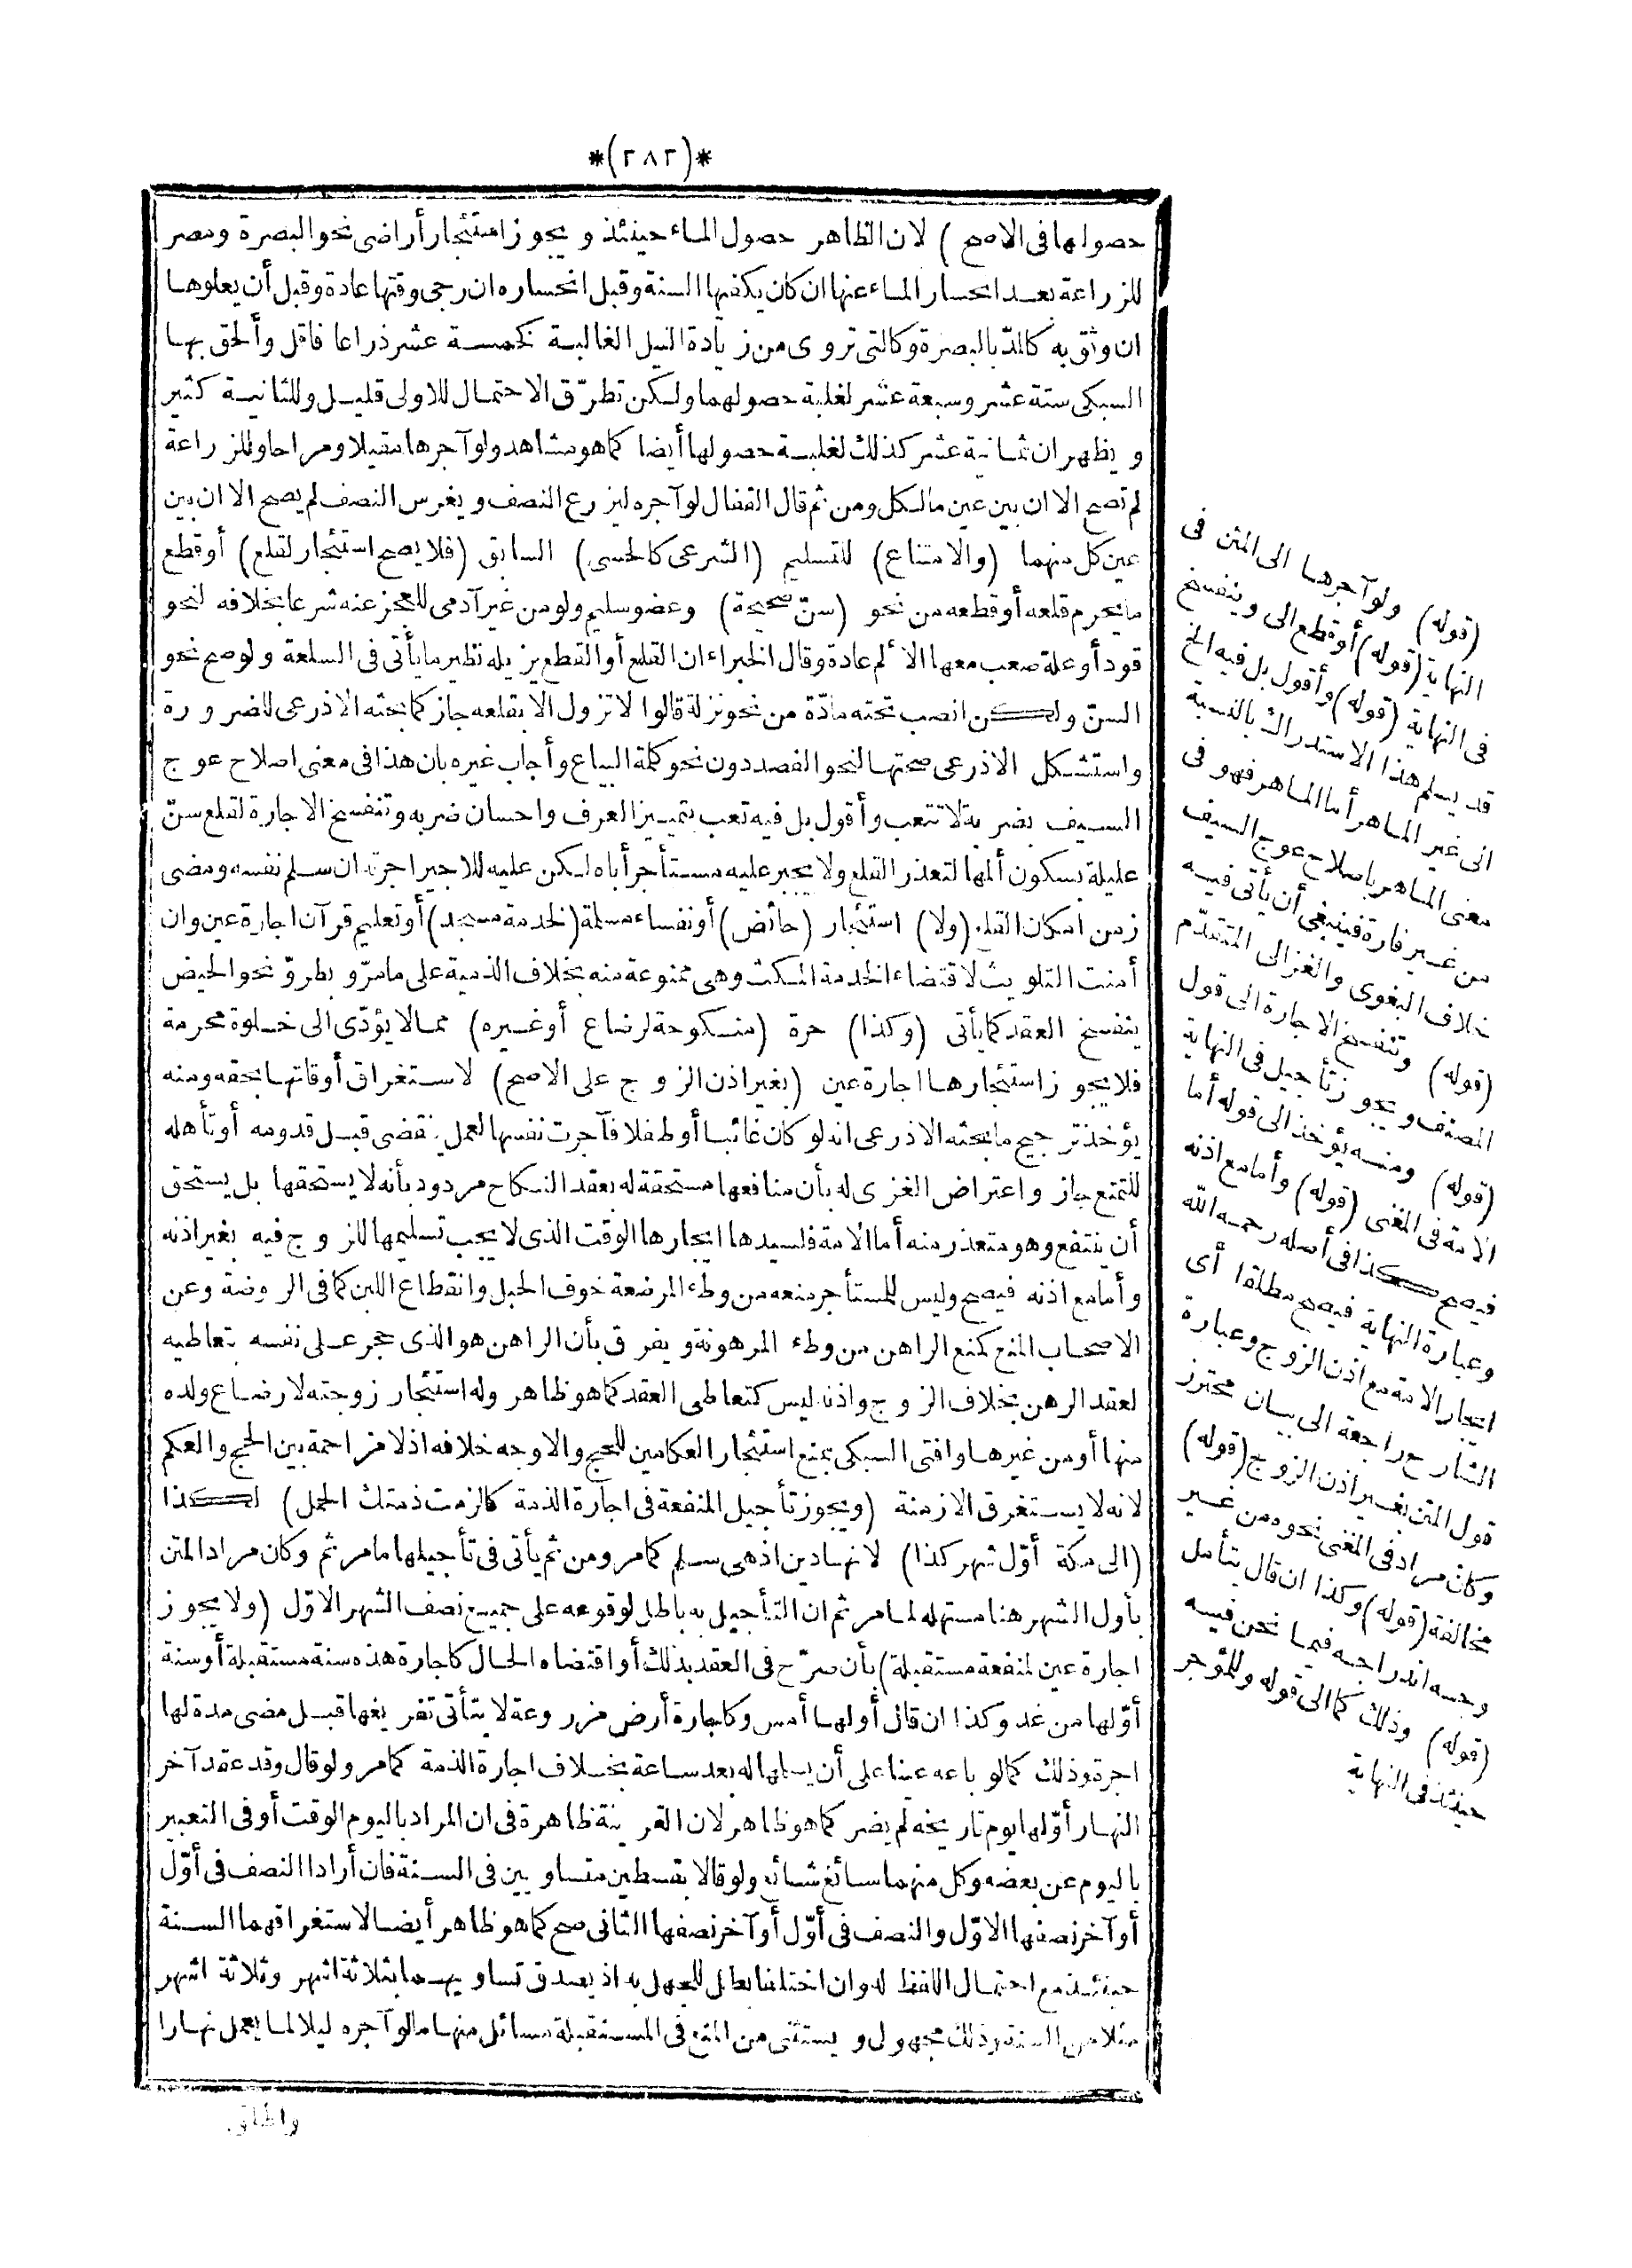 *(٢٨٢)*
حصولها فى الاصح ) لان الظاهر حصول الماء حينئذ ويجوز استئجار أراضى نحو البصرة ومصر
للزراعة بعد انحسار الماء عنها ان كان يكفيها السنة وقبل انحساره ان رجى وقتها عادة وقبل أن يعلوها
ان وثق به كالمدّ بالبصرة وكالتى تروى من زيادة النيل الغالبة كخمسة عشر ذراعا فاقل وألحق بها
السبكى ستة عشر وسبعة عشر لغلبة حصولهما ولكن تطرّق الاحتمال للاولى قليل وللثانية كثير
ويظهر ان ثمانية عشر كذلك لغلبة حصولها أيضا كما هو مشاهد ولو آجرها مقيلا ومراحا وللزراعة
لم تصح الا ان بين عين ما لكل ومن ثم قال القفال لو آجره ليزرع النصف ويغرس النصف لم يصح الا ان بين
عين كل منهما (والامتناع) للتسليم (الشرعى كالحسى) السابق (فلا يصح استئجار لقلع) أو قطع
ما يحرم قلعه أو قطعه من نحو (سنّ صحيحة) وعضو سليم ولو من غير آدمى للعجز عنه شرعا بخلافه لنحو
قود أو علة صعب معها الالم عادة وقال الخبراء ان القلع أو القطع يزيله نظير ما يأتى فى السلعة ولو صح نحو
السنّ ولكن انصب تحته مادّة من نحو نزلة قالوا لا تزول الا بقلعه جاز كما بحثه الاذرعى للضرورة
واستشكل الاذرعى صحتها لنحو الفصد دون نحو كلمة البياع وأجاب غيره بان هذا فى معنى اصلاح عوج
السيف بضربة لا تتعب وأقول بل فيه تعب بتمييز العرف واحسان ضربه وتنفسخ الاجارة لقلع سنّ
عليلة بسكون ألمها لتعذر القلع ولا يجبر عليه مستأجر أباه لكن عليه للاجير اجرته ان سلم نفسه ومضى
زمن امكان القلع (ولا) استئجار (حائض) أو نفساء مسلمة (لخدمة مسجد) أو تعليم قرآن اجارة عين وان
أمنت التلويث لاقتضاء الخدمة المكث وهى ممنوعة منه بخلاف الذمية على ما مرّ وبطروّ نحو الحيض
ينفسخ العقد كما يأتى (وكذا) حرة (منكوحة لرضاع أو غيره) مما لا يؤدّى الى خلوة محرمة
فلا يجوز استئجارها اجارة عين (بغير اذن الزوج على الاصح) لاستغراق أوقاتها بحقه ومنه
يؤخذ ترجيح ما بحثه الاذرعى انه لو كان غائبا أو طفلا فآجرت نفسها لعمل ينقضى قبل قدومه أو تأهله
للتمتع جاز واعتراض الغزى له بأن منافعها مستحقة له بعقد النكاح مردود بأنه لا يستحقها بل يستحق
أن ينتفع وهو متعذر منه أما الامة فلسيدها ايجارها الوقت الذى لا يجب تسليمها للزوج فيه بغير اذنه
وأما مع اذنه فيصح وليس للمستأجر منعه من وطء المرضعة خوف الحبل وانقطاع اللبن كما فى الروضة وعن
الاصحاب المنع كمنع الراهن من وطء المرهونة ويفرق بأن الراهن هو الذى حجر على نفسه بتعاطيه
لعقد الرهن بخلاف الزوج واذنه ليس كتعاطى العقد كما هو ظاهر وله استئجار زوجته لارضاع ولده
منها أو من غيرها وافتى السبكى بمنع استئجار العكامين للحج والاوجه خلافه اذ لا مزاحمة بين الحج والعكم
لانه لا يستغرق الازمنة (ويجوز تأجيل المنفعة فى اجارة الذمة كالزمت ذمتك الحمل) لكذا
(الى مكة أوّل شهر كذا) لانها دين اذ هى سلم كما مر ومن ثم يأتى فى تأجيلها ما مر ثم وكان مراد المتن
بأول الشهر هنا مستهله لما مر ثم ان التأجيل به باطل لوقوعه على جميع نصف الشهر الاوّل (ولا يجوز
اجارة عين لمنفعة مستقبلة) بأن صرّح فى العقد بذلك أو اقتضاه الحال كاجارة هذه سنة مستقبلة أو سنة
أوّلها من غد وكذا ان قال أولها أمس وكاجارة أرض مزروعة لا يتأتى تفريغها قبل مضى مدة لها
اجرة وذلك كما لو باعه عينا على أن يسلمها له بعد ساعة بخلاف اجارة الذمة كما مر ولو قال وقد عقد آخر
النهار أوّلها يوم تاريخه لم يضر كما هو ظاهر لان القرينة ظاهرة فى ان المراد باليوم الوقت أو فى التعبير
باليوم عن بعضه وكل منهما سائغ شائع ولو قالا بقسطين متساويين فى السنة فان أرادا النصف فى أوّل
أو آخر نصفها الاوّل والنصف فى أوّل أو آخر نصفها الثانى صح كما هو ظاهر أيضا لاستغراقهما السنة
حينئذ مع احتمال اللفظ له وان اختلفا بطل للجهل به اذ يصدق تساويهما بثلاثة اشهر وثلاثة اشهر
مثلا من السنة وذلك مجهول ويستثنى من المنع فى المستقبلة مسائل منها ما لو آجره ليلا لما يعمل نهارا
واطلق
(قوله) ولو آجرها الى المتن فى
النهاية (قوله) أو قطع الى وينفسخ
فى النهاية (قوله) وأقول بل فيه الخ
قد يسلم هذا الاستدراك بالنسبة
الى غير الماهر أما الماهر فهو فى
معنى الماهر باصلاح عوج السيف
من غير فارق فينبغى أن يأتى فيه
خلاف البغوى والغزالى المتقدّم
(قوله) وتنفسخ الاجارة الى قول
المصنف ويجوز تأجيل فى النهاية
(قوله) ومنه يؤخذ الى قوله أما
الامة فى المغنى (قوله) وأما مع اذنه
فيصح كذا فى أصله رحمه الله
وعبارة النهاية فيصح مطلقا أى
ايجار الامة مع اذن الزوج وعبارة
الشارح راجعة الى بيان محترز
قول المتن بغير اذن الزوج (قوله)
وكان مراد فى المغنى نحوه من غير
مخالفة (قوله) وكذا ان قال يتأمل
وجه اندراجه فيما نحن فيه
(قوله) وذلك كما الى قوله وللمؤجر
حينئذ فى النهاية